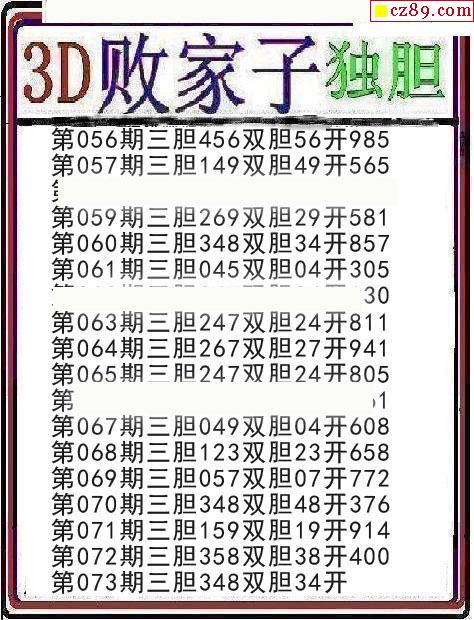 cz89.com
3D败家子独胆
第056期三胆456双胆56开985
第057期三胆149双胆49开565
第059期三胆269双胆29开581
第060期三胆348双胆34开857
第061期三胆045双胆04开305
30
第063期三胆247双胆24开811
第064期三胆267双胆27开941
第065期三胆247双胆24开805
第
第067期三胆049双胆04开608
第068期三胆123双胆23开658
第069期三胆057双胆07开772
第070期三胆348双胆48开376
第071期三胆159双胆19开914
第072期三胆358双胆38开400
第073期三胆348双胆34开